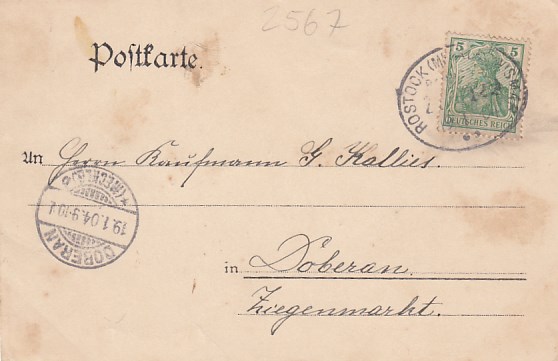 2567
Postkarte.
5 5
DEUTSCHES REICH
ROSTOCK
An Herrn Kaufmann G. Kallies.
DOBERAN
(MECKLB)
19.1.04.9-10
in Doberan.
Ziegenmarkt.